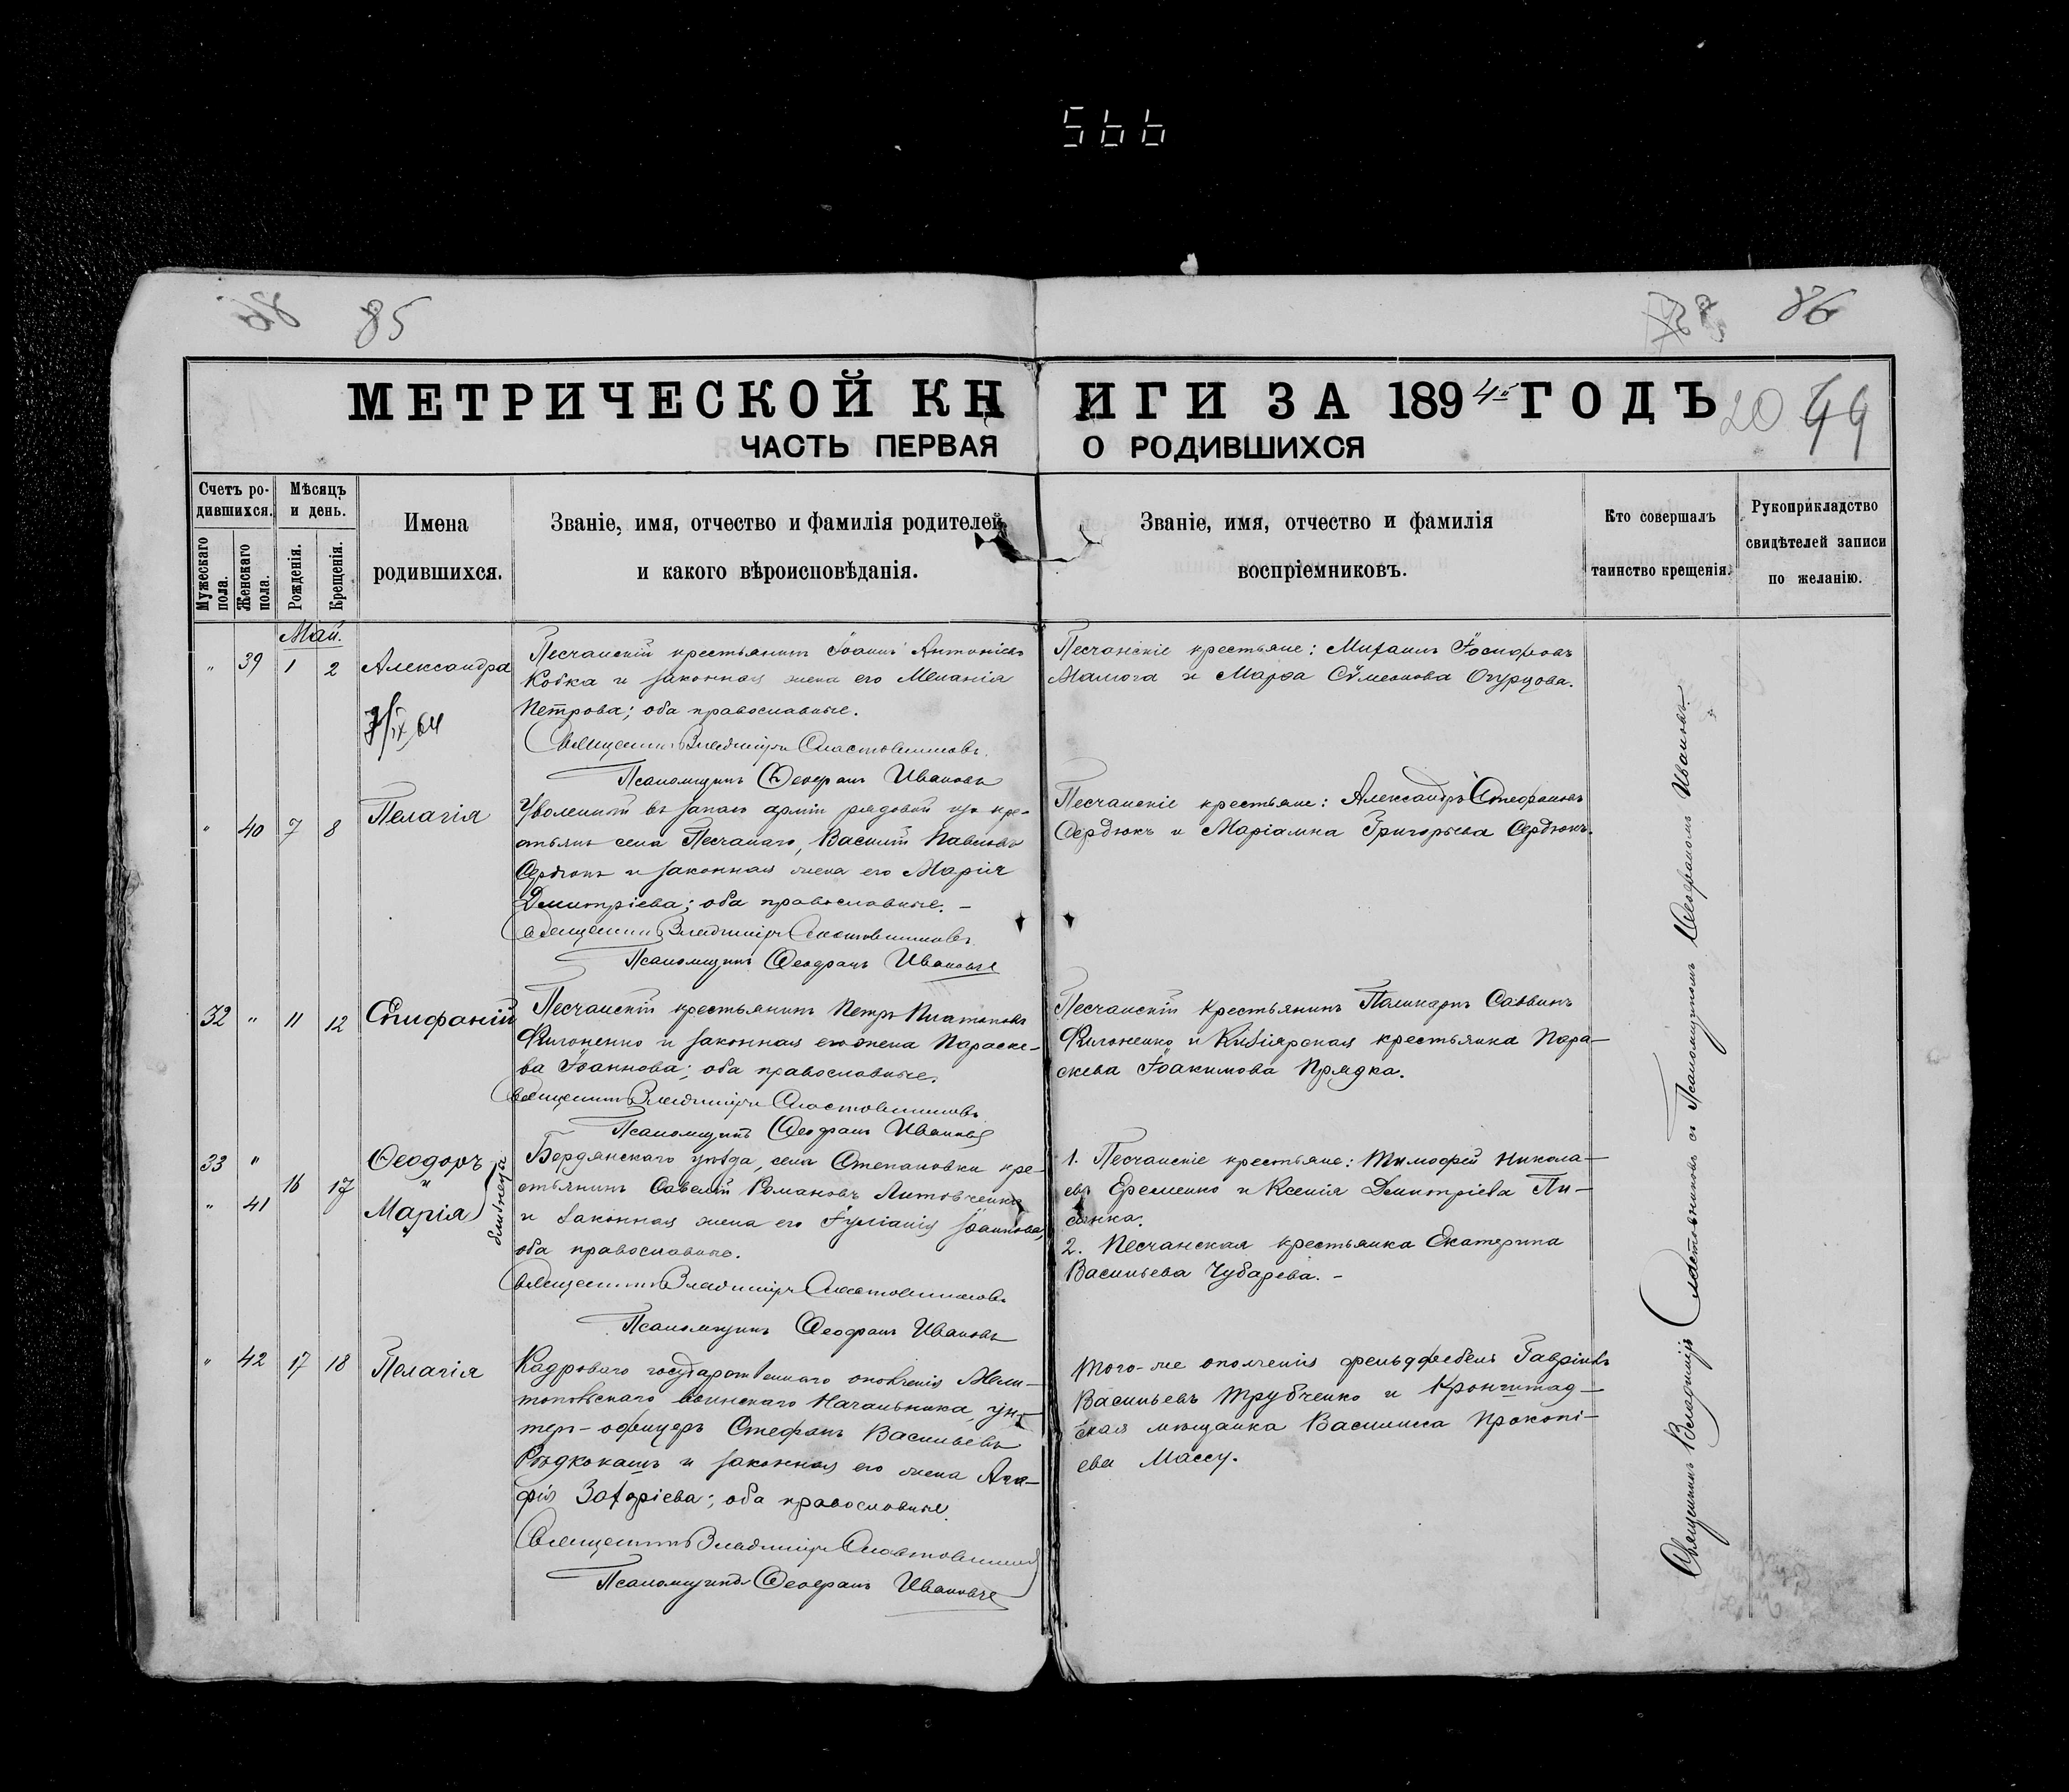 566
85
86
МЕТРИЧЕСКОЙ КНИГИ ЗА 1894й ГОДЪ
20 44
ЧАСТЬ ПЕРВАЯ О РОДИВШИХСЯ
Счетъ родившихся.
Мужескаго пола.
Женскаго пола.
Мѣсяцъ и день.
Рожденія.
Крещенія.
Имена
родившихся.
Званіе, имя, отчество и фамилія родителей,
и какого вѣроисповѣданія.
Званіе, имя, отчество и фамилія
воспріемниковъ.
Кто совершалъ
таинство крещенія.
Рукоприкладство
свидѣтелей записи
по желанію.
Май.
" 39 1 2 Александра
Песчанскій крестьянинъ Іоаннъ Антоніевъ
Кобка и законная жена его Меланія
Петрова; оба православные.
Священникъ Владиміръ Сластовниковъ.
Псаломщикъ Феофанъ Ивановъ
Песчанскіе крестьяне: Михаилъ Іосифовъ
Малюга и Марфа Сѵмеонова Огурцова.
" 40 7 8 Пелагія
Уволенный въ запасъ арміи рядовой изъ кре-
стьянъ села Песчанаго, Василій Павловъ
Сердюкъ и законная жена его Марія
Димитріева; оба православные. -
Священникъ Владиміръ Сластовниковъ.
Псаломщикъ Феофанъ Ивановъ
Песчанскіе крестьяне: Александръ Стефановъ
Сердюкъ и Маріамна Григорьева Сердюкъ.
32 " 11 12 Епифаній
Песчанскій крестьянинъ Петръ Платоновъ
Филоненко и законная его жена Параске-
ва Іоаннова; оба православные.
Священникъ Владиміръ Сластовниковъ
Псаломщикъ Феофанъ Ивановъ
Песчанскій крестьянинъ Саввинъ
Филоненко и крестьянка Пара-
скева Іоакимова Прядка.
33 " Ѳеодоръ
16 17 и
" 41 Марія
близнецы
Бердянскаго уѣзда, села Степановки кре-
стьянинъ Савелій Романовъ Литовченко
и законная жена его Іуліанія Іоаннова,
оба православные.
Священникъ Владиміръ Сластовниковъ
Псаломщикъ Феофанъ Ивановъ
1. Песчанскіе крестьяне: Тимофей Никола-
евъ Еременко и Ксенія Димитріева Пи-
санка.
2. Песчанская крестьянка Екатерина
Васильева Чубарева. -
" 42 17 18 Пелагія
Кадроваго государственнаго ополченія Мели-
топольскаго воинскаго Начальника, ун-
теръ-офицеръ Стефанъ Васильевъ
Рѣдкокашъ и законная его жена Ага-
фія Захаріева; оба православные.
Священникъ Владиміръ Сластовниковъ
Псаломщикъ Феофанъ Ивановъ
Того-же ополченія фельдфебель Гавріилъ
Васильевъ Трубченко и Кронштад-
ская мѣщанка Василисса Прокопі-
ева Массу.
Священникъ Владиміръ Сластовниковъ съ Псаломщикомъ Феофаномъ Ивановъ.